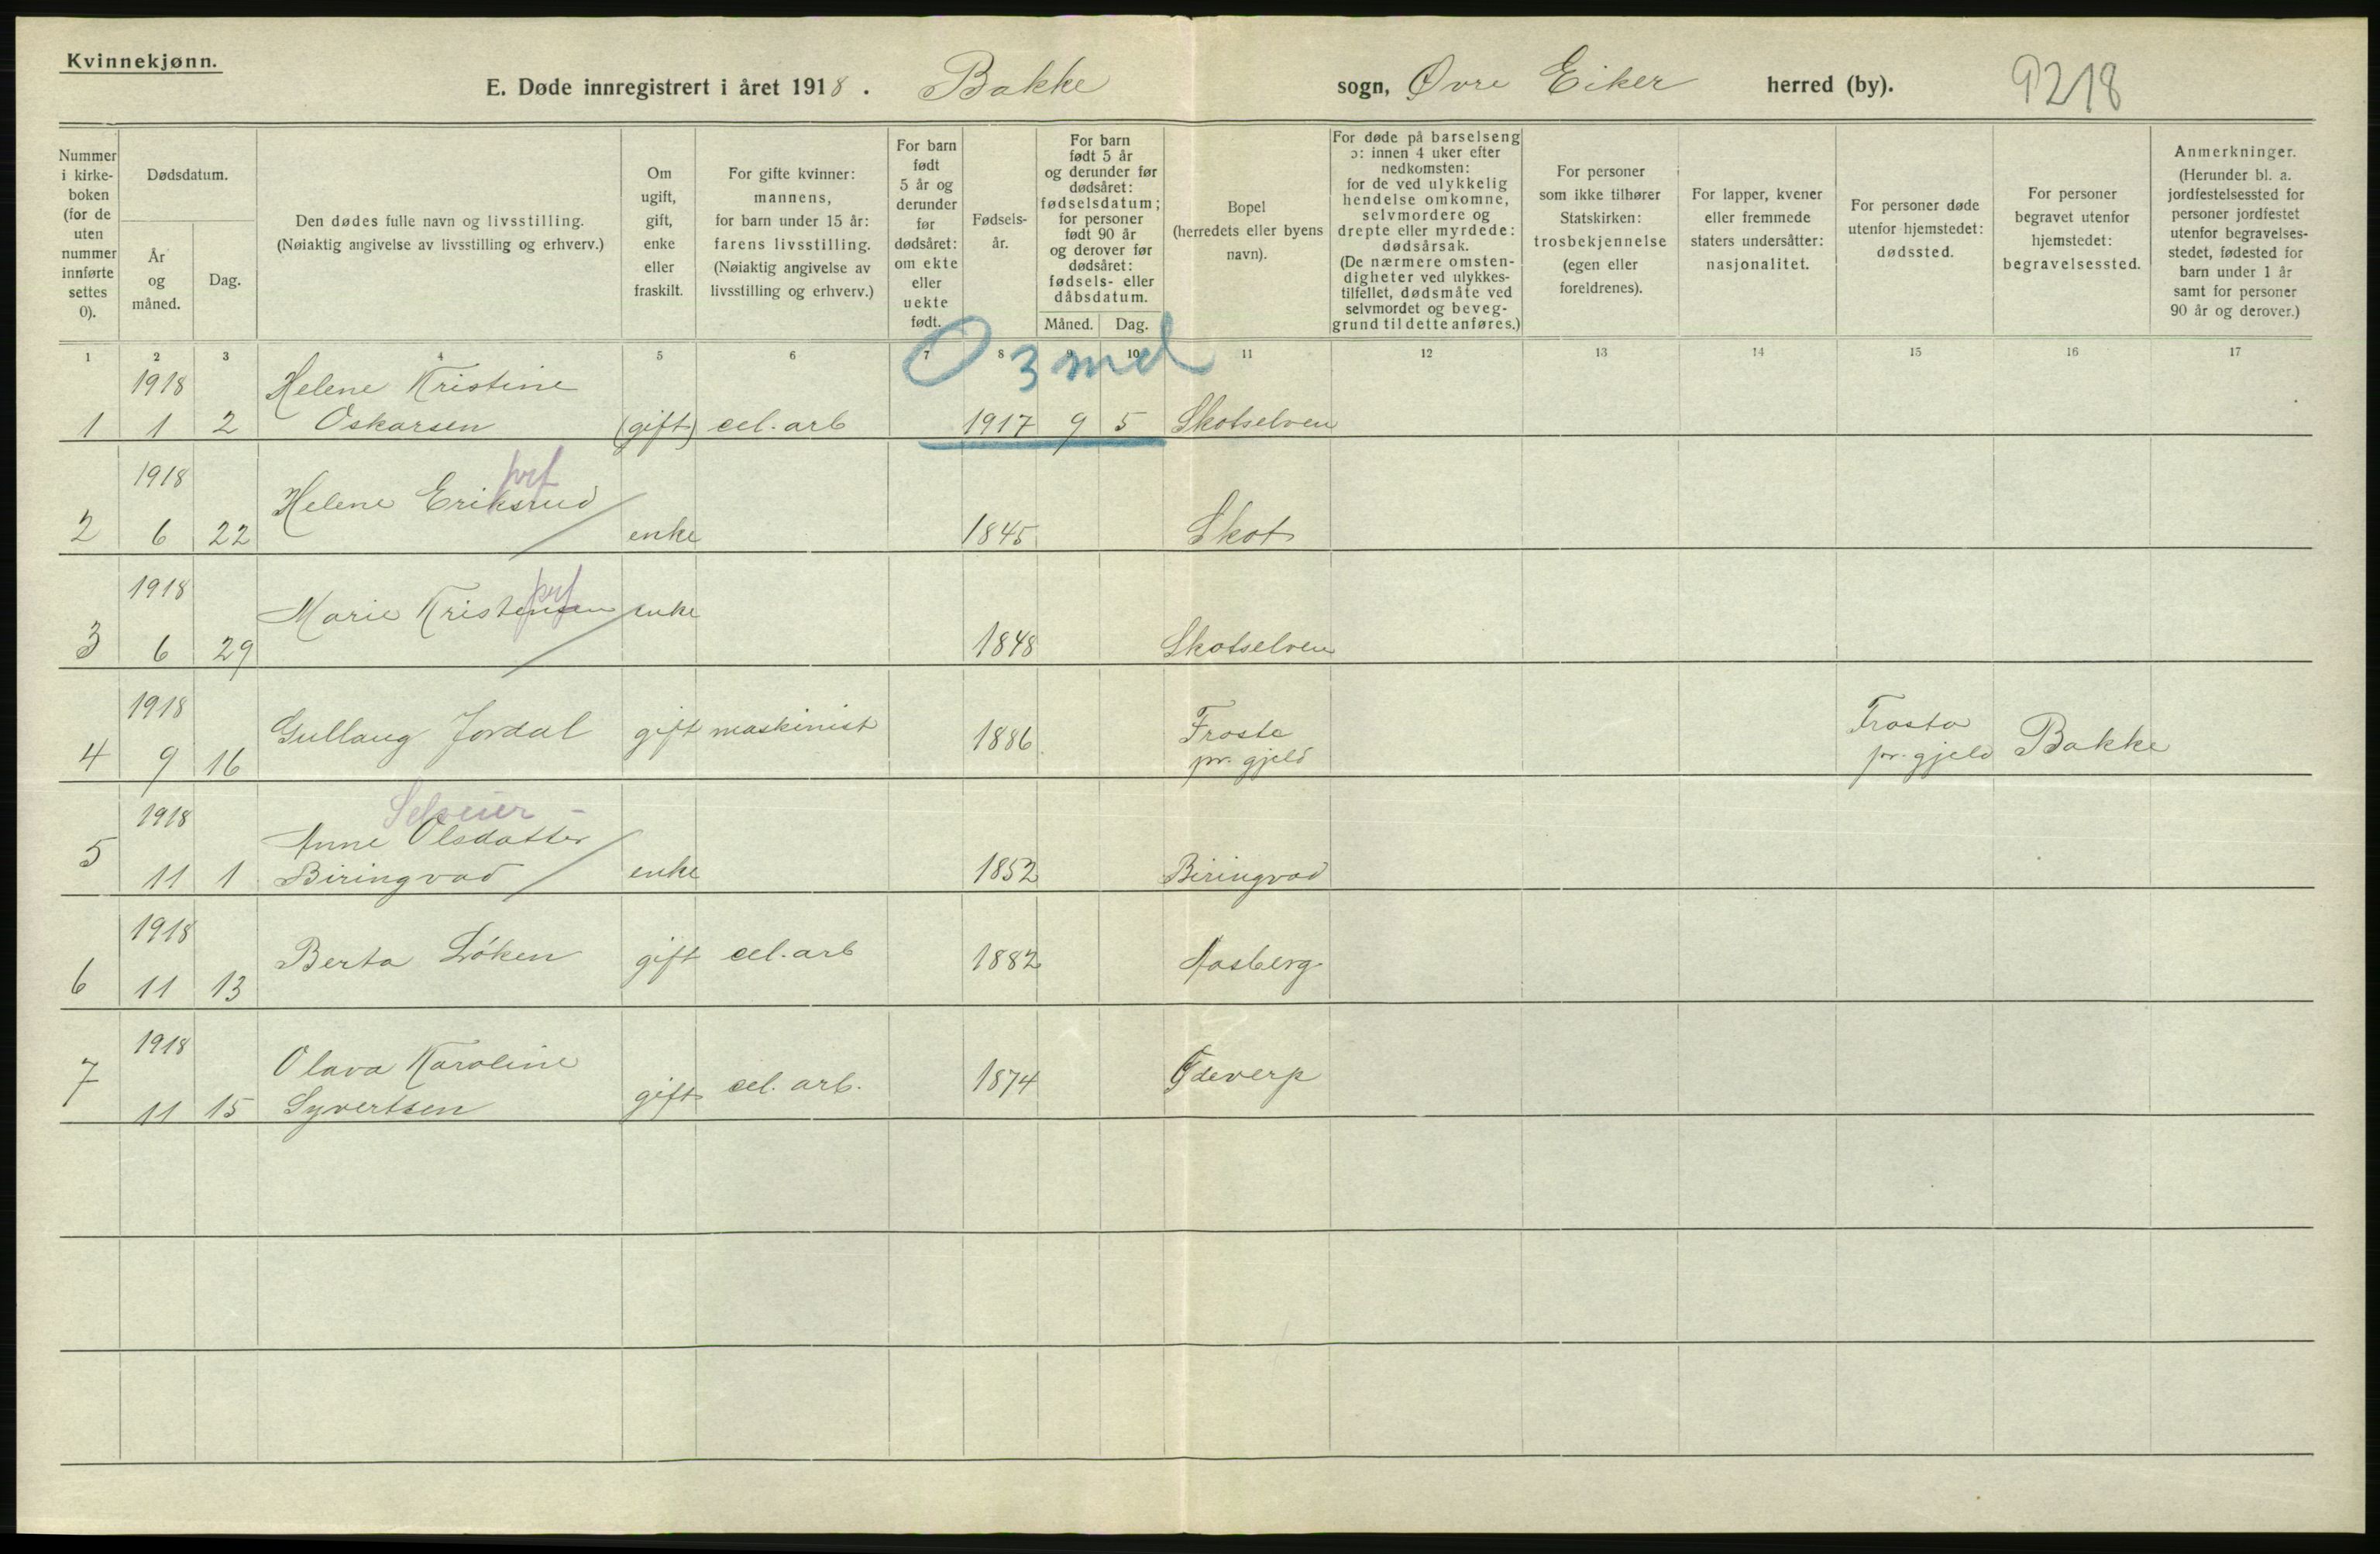 Kvinnekjønn.
E. Døde innregistrert i året 1918. Bakke sogn, Øvre Eiker herred (by). 9218
Nummer i kirkeboken (for de uten nummer innførte settes 0).
Dødsdatum.
År og måned.
Dag.
Den dødes fulle navn og livsstilling. (Nøiaktig angivelse av livsstilling og erhverv.)
Om ugift, gift, enke eller fraskilt.
For gifte kvinner: mannens, for barn under 15 år: farens livsstilling. (Nøiaktig angivelse av livsstilling og erhverv.)
For barn født 5 år og derunder før dødsåret: om ekte eller uekte født.
Fødselsår.
For barn født 5 år og derunder før dødsåret: fødselsdatum; for personer født 90 år og derover før dødsåret: fødsels- eller dåbsdatum.
Måned. Dag.
Bopel (herredets eller byens navn).
For døde på barselseng ɔ: innen 4 uker efter nedkomsten: for de ved ulykkelig hendelse omkomne, selvmordere og drepte eller myrdede: dødsårsak. (De nærmere omstendigheter ved ulykkestilfellet, dødsmåte ved selvmordet og beveggrund til dette anføres.)
For personer som ikke tilhører Statskirken: trosbekjennelse (egen eller foreldrenes).
For lapper, kvener eller fremmede staters undersåtter: nasjonalitet.
For personer døde utenfor hjemstedet: dødssted.
For personer begravet utenfor hjemstedet: begravelsessted.
Anmerkninger. (Herunder bl. a. jordfestelsessted for personer jordfestet utenfor begravelsesstedet, fødested for barn under 1 år samt for personer 90 år og derover.)
1 2 3 4 5 6 7 8 9 10 11 12 13 14 15 16 17
0 3 md
1918 Helene Kristine
1 1 2 Oskarsen (gift) cel. arb 1917 9 5 Skotselven
prf
1918 Helene Eriksrud
2 6 22 enke 1845 Skot
prf
1918 Marie Kristensen enke
3 6 29 1848 Skotselven
1918 Gullaug Jordal gift maskinist 1886 Froste Frosta
4 9 16 pr. gjeld pr. gjeld Bakke
Selveier -
1918 Anne Olsdatter
5 11 1 Biringvad enke 1852 Biringvad
1918 Berta Løken gift cel. arb 1882 Aasberg
6 11 13
1918 Olava Karoline
7 gift cel. arb. 1874 Ødeverp
11 15 Syvertsen